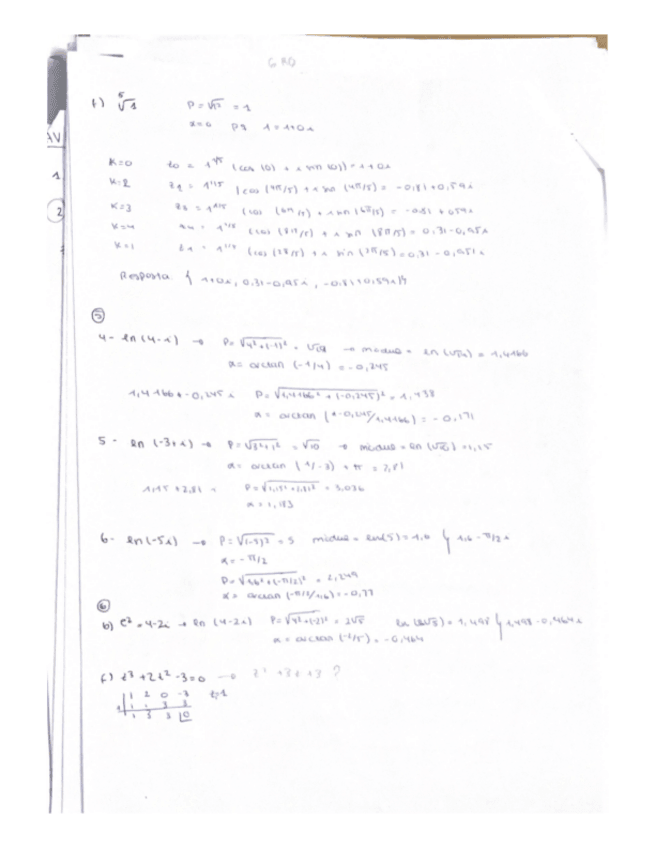 f) ⁵√1 P = √1² = 1
α=0 pq 1 = 1+0i
K=0 z0 = 1^1/5 (cos (0) + i sin (0)) = 1+0i
K=2 z1 = 1^1/5 (cos (4π/5) + i sin (4π/5) = -0,81+0,59i
K=3 = 1^1/5 (cos (6π/5) + i sin (6π/5) = -0,81 + 0,59i
K=4 = 1^1/5 (cos (8π/5) + i sin (8π/5) = 0,31-0,95i
K=1 z1 = 1^1/5 (cos (2π/5) + i sin (2π/5) = 0,31-0,951i
Resposta: { 1+0i, 0,31-0,95i, -0,81+0,59i}
⑤
4- ln(4-i) → P = √4²+(-1)² = → modulo = ln(√17) = 1,4166
α = arctan (-1/4) = -0,245
1,4166 + -0,245i P = √1,4166² + (-0,245)² = 1,438
α = arctan (-0,245/1,4166) = -0,171
5- ln(-3+i) → P = √3²+1² = √10 → modulo = ln(√10) = 1,15
α = arctan (1/-3) + π = 2,81
1,15 + 2,81 i P = √1,15²+2,81² = 3,036
α = 1,183
6- ln(-5i) → P = √(-5)² = 5 modulo = ln(5) = 1,6 } 1,6 - π/2 i
α = -π/2
P = √1,6²+(-π/2)² = 2,249
α = arctan (-π/2/1,6) = -0,77
⑥
b) e^z = 4-2i → ln (4-2i) P = √4²+(-2)² = 2√5 ln (2√5) = 1,498 } 1,498 - 0,464i
α = arctan (-1/2) = -0,464
f) z³+2z²-3=0 → z² +3z+3 ?
1 2 0 -3 z=1
1 1 3 3
1 3 3 0
AV
1
2